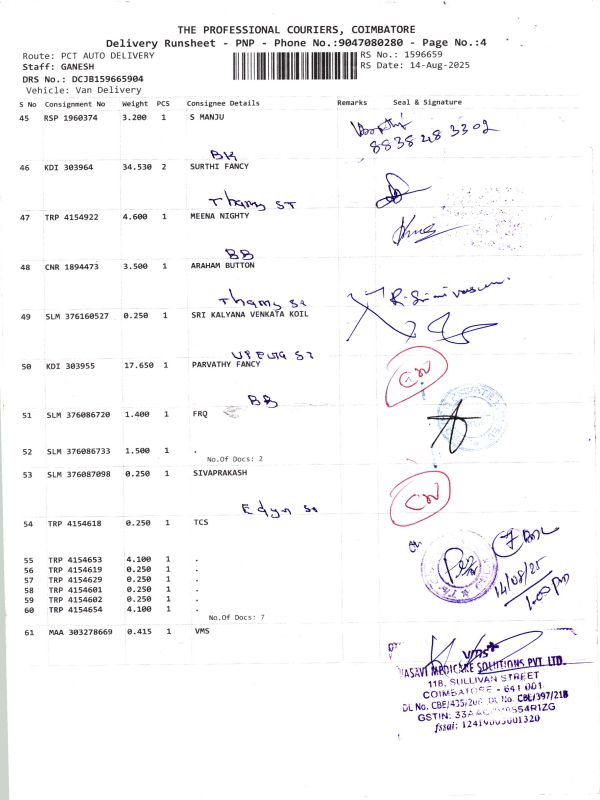 THE PROFESSIONAL COURIERS, COIMBATORE
Delivery Runsheet - PNP - Phone No.:9047080280 - Page No.:4
Route: PCT AUTO DELIVERY
RS No.: 1596659
Staff: GANESH
RS Date: 14-Aug-2025
DRS No.: DCJB159665904
Vehicle: Van Delivery
S No Consignment No Weight PCS Consignee Details Remarks Seal & Signature
45 RSP 1960374 3.200 1 S MANJU
8838483302
BK
46 KDI 303964 34.530 2 SURTHI FANCY
Thamy ST
47 TRP 4154922 4.600 1 MEENA NIGHTY
BB
48 CNR 1894473 3.500 1 ARAHAM BUTTON
Thamy St
R. Srinivasan
49 SLM 376160527 0.250 1 SRI KALYANA VENKATA KOIL
50 KDI 303955 17.650 1 PARVATHY FANCY
BB
51 SLM 376086720 1.400 1 FRQ
52 SLM 376086733 1.500 1 .
No.Of Docs: 2
53 SLM 376087098 0.250 1 SIVAPRAKASH
54 TRP 4154618 0.250 1 TCS
55 TRP 4154653 4.100 1 .
56 TRP 4154619 0.250 1 .
57 TRP 4154629 0.250 1 .
58 TRP 4154601 0.250 1 .
59 TRP 4154602 0.250 1 .
60 TRP 4154654 4.100 1 .
No.Of Docs: 7
14/08/25
1.00 pm
61 MAA 303278669 0.415 1 VMS
VMS*
VASAVI MEDICARE SOLUTIONS PVT. LTD.
118, SULLIVAN STREET
COIMBATORE - 641 001
DL No. CBE/435/20B, DL No. CBE/397/21B
GSTIN: 33A
fssai: